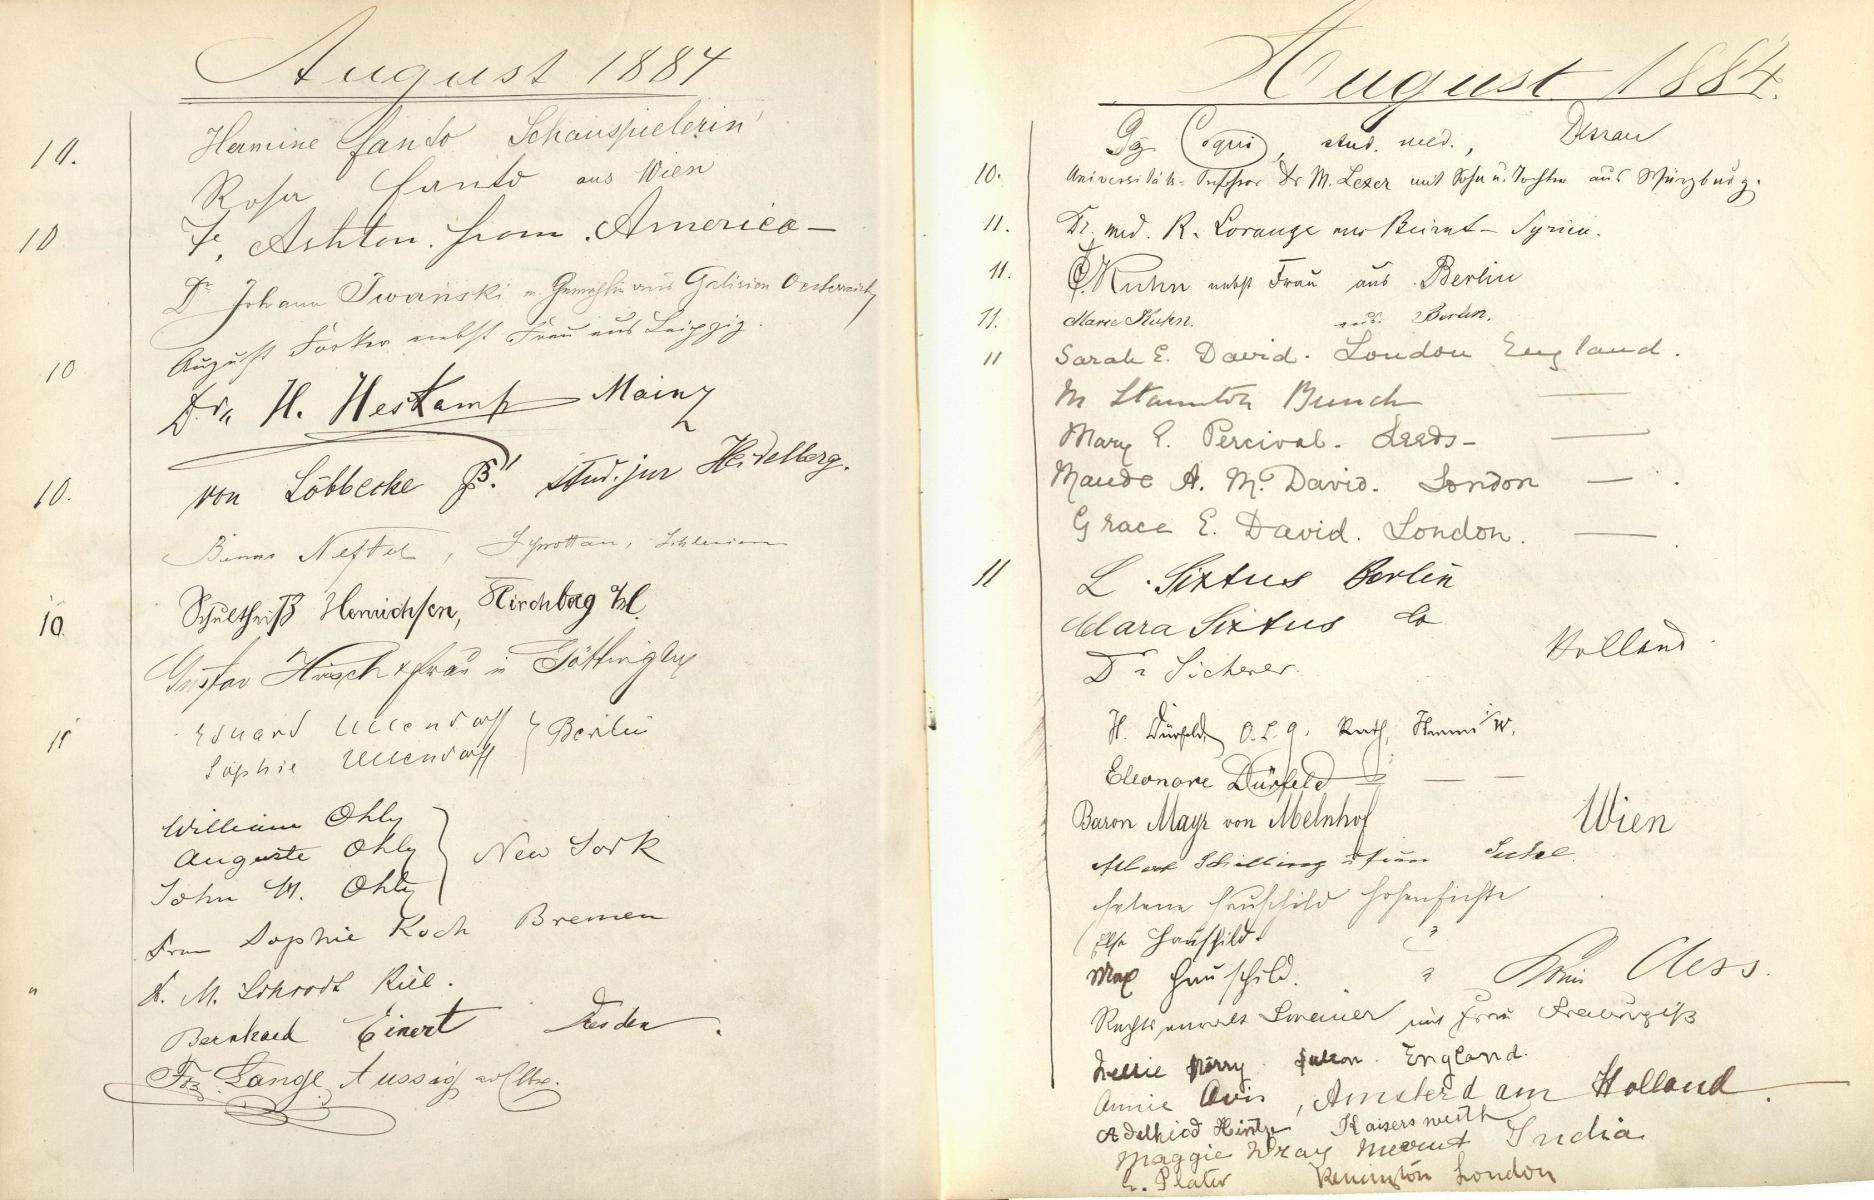 August 1884
10. Hermine Fanto Schauspielerin
Rosa Fanto aus Wien
10 F. Ashton. from America —
Dr Johann Iwański u. Gemahlin aus Galizien Oesterreich
10 August Förker nebst Frau aus Leipzig.
Dr. H. Heskamp Mainz
10. von Löbbecke stud. jur Heidelberg.
Neftel, Sprottau, Schlesien
10. Schultheiß Henrichsen, Kirchberg
Gustav Hirsch & Frau in Göttingen
11 Eduard Ullendorff } Berlin
Sophie Ullendorff
William Ohly
Auguste Ohly } New York
John M. Ohly
Frau Sophie Koch Bremen
" M. Schrodt Kiel.
Bernhard Einert Dresden.
Frz. Lange Aussig a/Elbe.
August 1884.
Coqui, stud. med., Dessau
10. Universitäts-Professor Dr M. Lexer mit Sohn u. Tochter aus Würzburg.
11. Dr. med. R. Lorange aus Beirut – Syrien.
11. C. Kuhn nebst Frau aus Berlin
11. Marie Kuhn. aus Berlin.
11 Sarah E. David. London England.
M Staunton Bunch —
Mary E. Percival. Leeds — —
Maude A. M. David. London — .
Grace E. David. London. — .
11 L. Sixtus Berlin
Clara Sixtus do
Dr Sicherer. Holland
H. Dürfeld, O. L. G. Rath, Hamm i/W.
Eleonore Dürfeld — — —
Baron Mayr von Melnhof Wien
Albert Schilling u Frau Suhl.
Helene Hauschild Hohenfichte
Else Hauschild. "
Max Hauschild. "
Rechtsanwalt mit Frau
Nellie England.
Annie Avis, Amsterdam Holland.
Adelheid Hintze Kaiserswerth
Maggie Wray Meerut India
Plater Kensington London